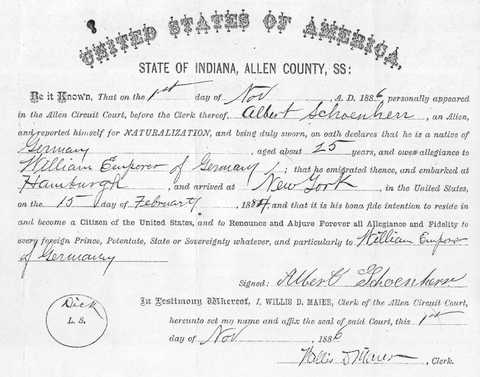 UNITED STATES OF AMERICA.
STATE OF INDIANA, ALLEN COUNTY, SS:
Be it Known, That on the 1st day of Nov A. D. 1886 personally appeared
in the Allen Circuit Court, before the Clerk thereof, Albert Schoenherr, an Alien,
and reported himself for NATURALIZATION, and being duly sworn, on oath declares that he is a native of
Germany, aged about 25 years, and owes allegiance to
William Emporer of Germany; that he emigrated thence, and embarked at
Hamburgh, and arrived at New York, in the United States,
on the 15 day of February 1884, and that it is his bona fide intention to reside in
and become a Citizen of the United States, and to Renounce and Abjure Forever all Allegiance and Fidelity to
every foreign Prince, Potentate, State or Sovereignty whatever, and particularly to William Emporer
of Germany
Signed: Albert Schoenherr
In Testimony Whereof, I, WILLIS D. MAIER, Clerk of the Allen Circuit Court,
hereunto set my name and affix the seal of said Court, this 1st
day of Nov 1886
Willis D Maier, Clerk.
Dick
L. S.